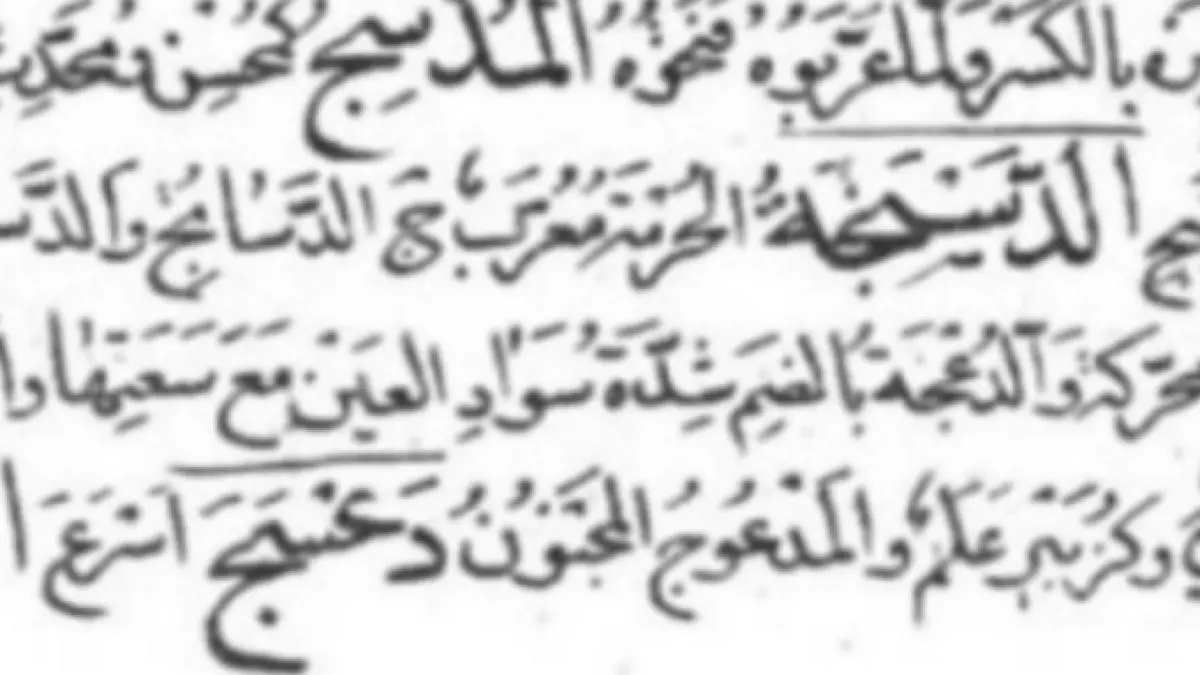 بالكَسْرِ وللمُعَرَّبُوهُ فتحوه المُدَّسِجُ كمُحْسِنٍ ومُحَدِّثٍ
الدَّسْتَجَةُ الحُزْمَةُ مُعَرَّبٌ ج الدَّسَاتِجُ والدَّسـ
محرَّكةً والدُّعْجَةُ بالضَّمِ شِدَّةُ سَوَادِ العَيْنِ مَعَ سَعَتِهَا وا
وكزُبَيْرٍ عَلَمٌ والمَدْعُوجُ المَجْنُونُ دَعْسَجَ أَسْرَعَ